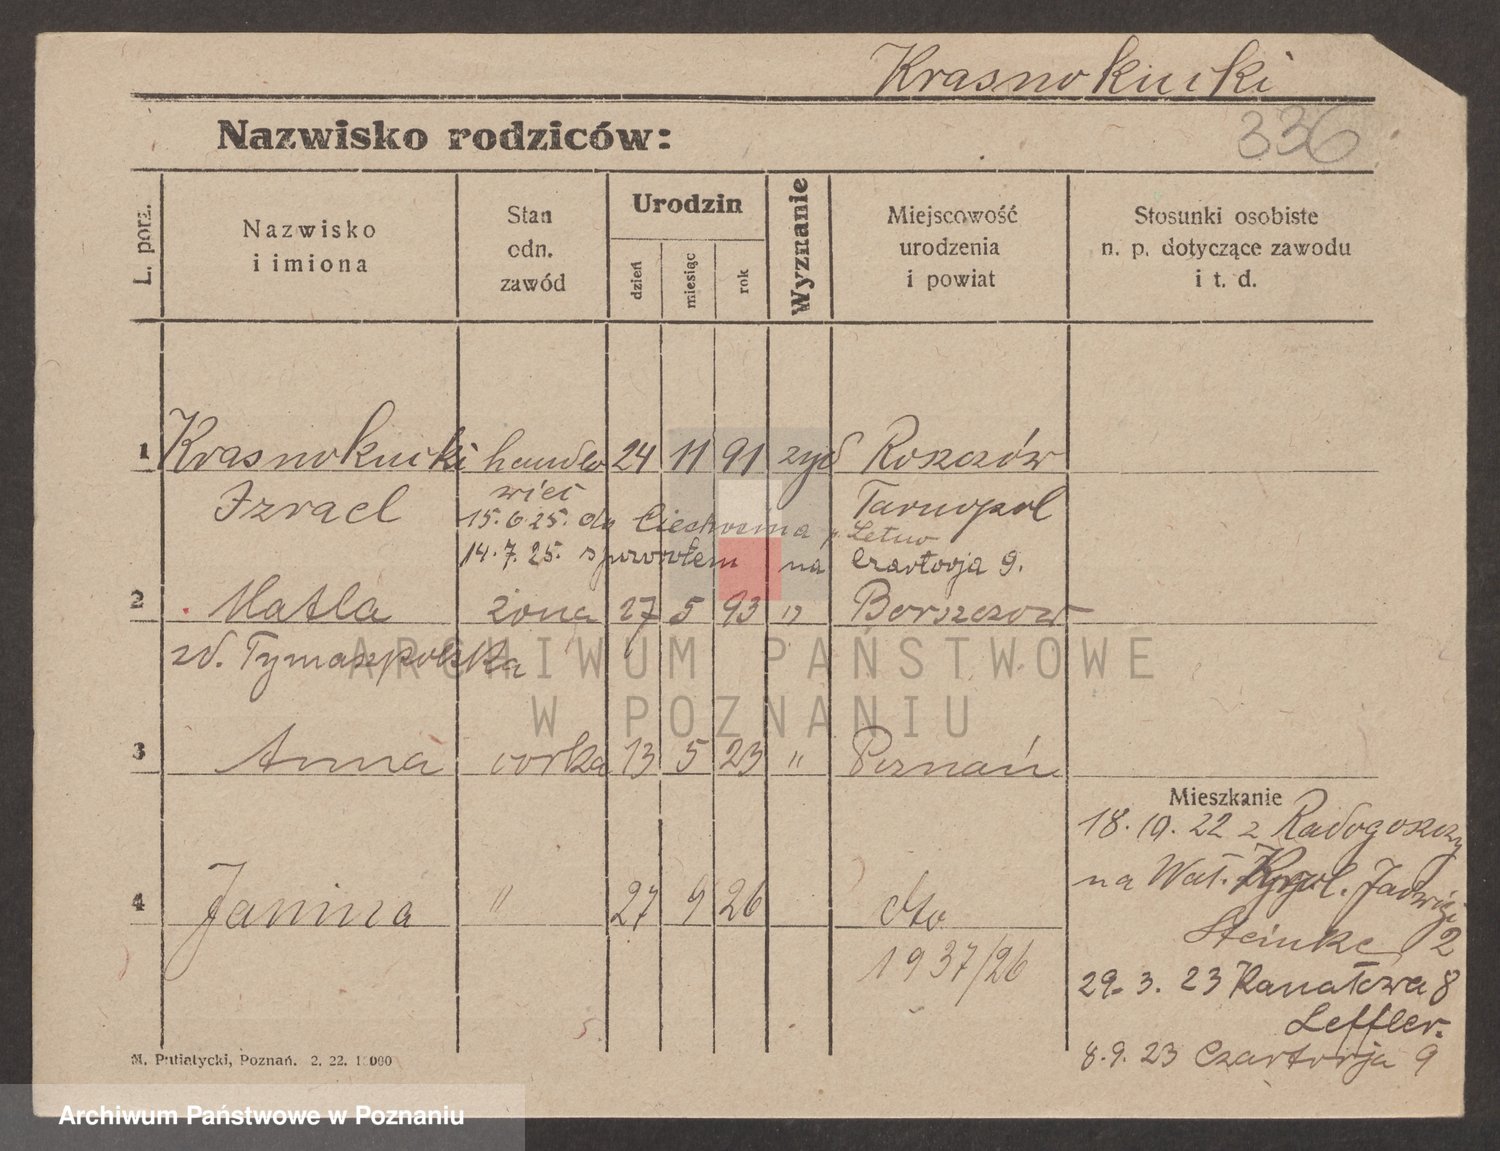 Krasnokucki
336
Nazwisko rodziców:
L. porz.
Nazwisko
i imiona
Stan
odn.
zawód
Urodzin
dzień
miesiąc
rok
Wyznanie
Miejscowość
urodzenia
i powiat
Stosunki osobiste
n. p. dotyczące zawodu
i t. d.
1 Krasnokucki handlo 24 11 91 żyd Roszczów
Izrael wiec Tarnopol
15.6.25. do Ciechocina p. Letuw
14.7.25. spowrotem na Czartorja 9.
2 Matla żona 27 5 93 " Borszczow
zd. Tymaszpolska
3 Anna córka 13 5 23 " Poznań
4 Janina " 27 9 26 dto
1937/26
Mieszkanie
18.10.22 z Radogoszczy
na Wał. Jadwigi 2
Steinke
29.3.23 Kanałowa 8
Leffler.
8.9.23 Czartorja 9
M. Putiatycki, Poznań. 2. 22. 1000
ARCHIWUM PAŃSTWOWE
W POZNANIU
Archiwum Państwowe w Poznaniu